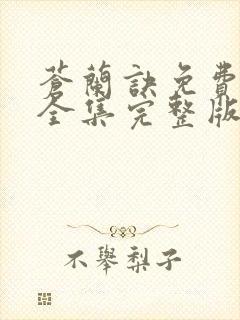 蒼蘭訣免費
全集完整版
不舉梨子